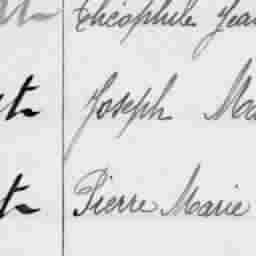 Théophile Jea
Joseph Ma
Pierre Marie